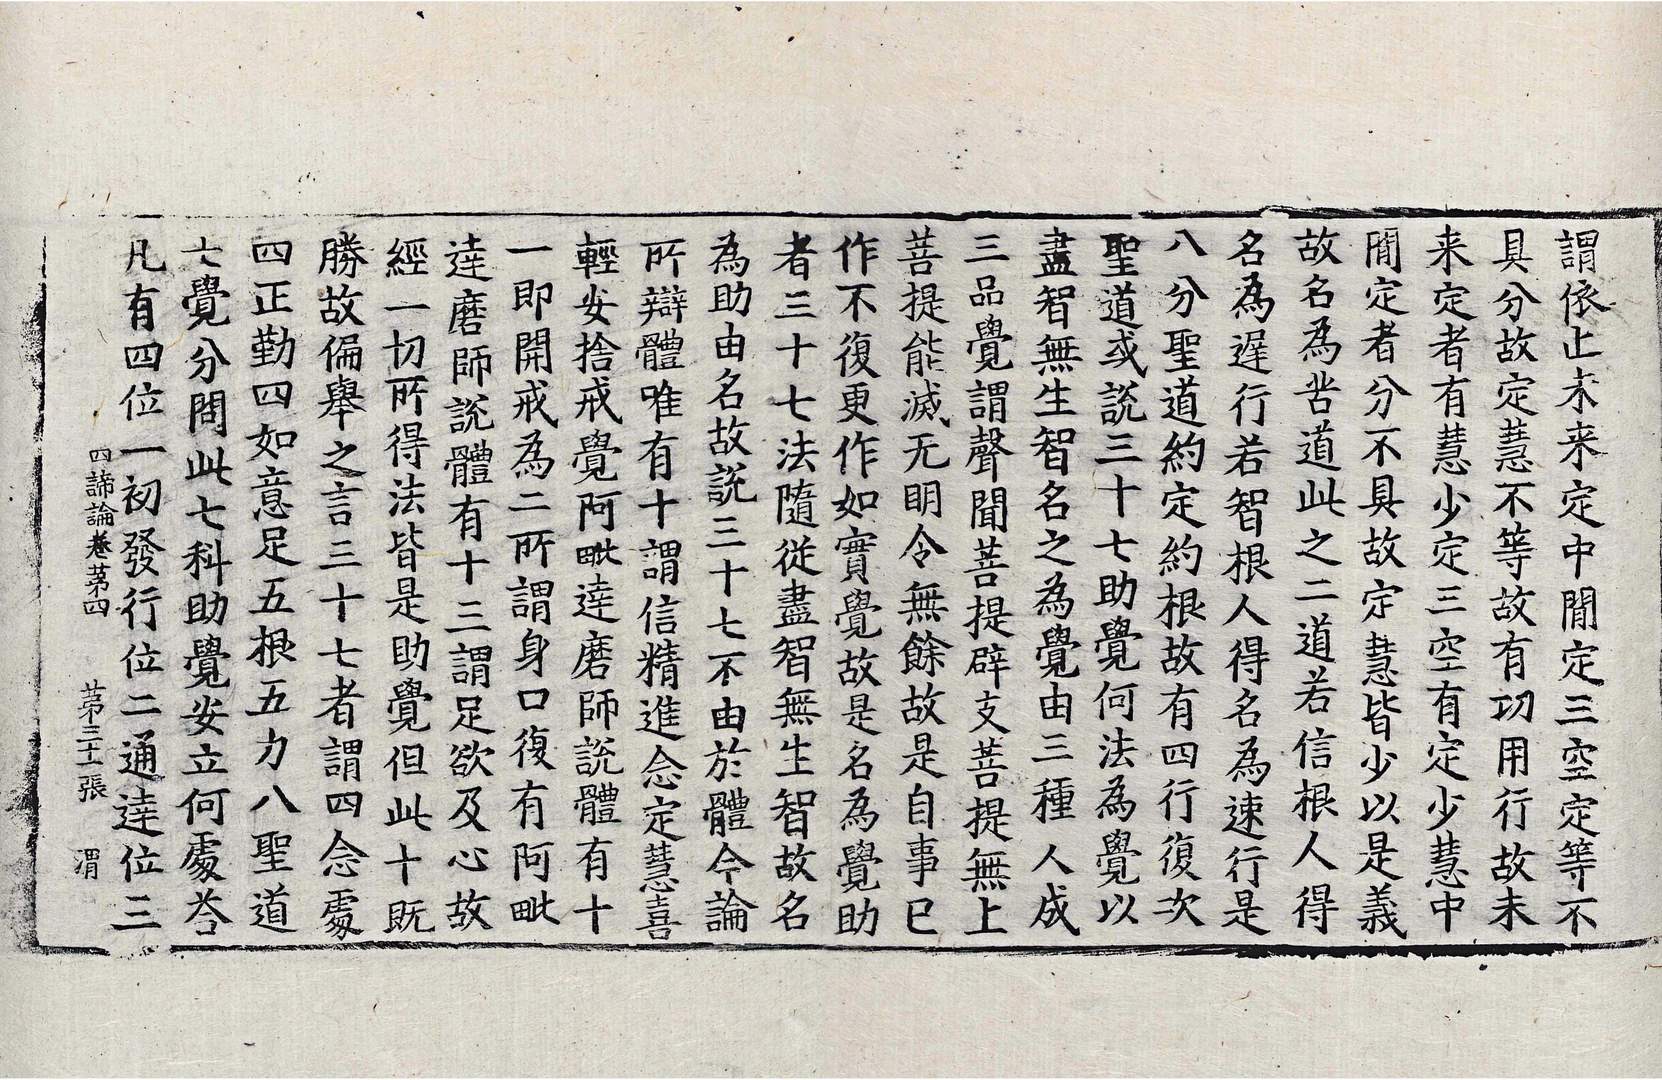 謂依止未来定中閒定三空定等不
具分故定慧不等故有功用行故未
来定者有慧少定三空有定少慧中
閒定者分不具故定慧皆少以是義
故名為苦道此之二道若信根人得
名為遅行若智根人得名為速行是
八分聖道約定約根故有四行復次
聖道或説三十七助覺何法為覺以
盡智無生智名之為覺由三種人成
三品覺謂聲聞菩提辟支菩提無上
菩提能滅无明令無餘故是自事已
作不復更作如實覺故是名為覺助
者三十七法隨從盡智無生智故名
為助由名故説三十七不由於體今論
所辯體唯有十謂信精進念定慧喜
輕安捨戒覺阿毗達磨師説體有十
一即開戒為二所謂身口復有阿毗
達磨師説體有十三謂足欲及心故
經一切所得法皆是助覺但此十既
勝故偏舉之言三十七者謂四念處
四正勤四如意足五根五力八聖道
七覺分問此七科助覺安立何處荅
凡有四位一初發行位二通達位三
四諦論卷苐四　苐三十張　渭